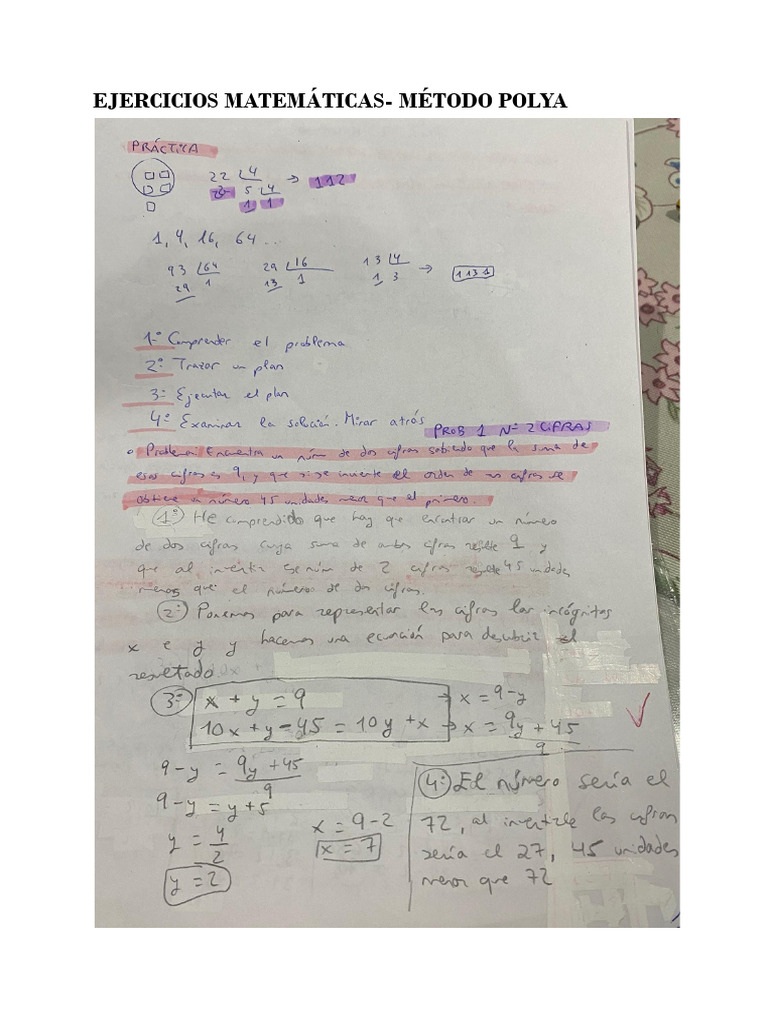 EJERCICIOS MATEMÁTICAS- MÉTODO POLYA
PRÁCTICA
22 4 → 112
2 5 4
1 1
1, 4, 16, 64...
93 64 29 16 13 4 → 1131
29 1 13 1 1 3
1º Comprender el problema
2º Trazar un plan
3º Ejecutar el plan
4º Examinar la solución. Mirar atrás PROB 1 Nº 2 CIFRAS
• Problema: Encuentra un núm de dos cifras sabiendo que la suma de
esas cifras es 9, y que si se invierte el orden de sus cifras se
obtiene un número 45 unidades menor que el primero.
1º He comprendido que hay que encontrar un número
de dos cifras cuya suma de ambas cifras resulte 9 y
que al invertir ese núm de 2 cifras resulte 45 unidades
menos que el número de dos cifras.
2º Ponemos para representar las cifras las incógnitas
x e y y hacemos una ecuación para descubrir el
resultado
3º x + y = 9 → x = 9-y
10x + y - 45 = 10y + x → x = 9y + 45
9
9-y = 9y + 45
9
9-y = y + 5
y = 4
2
y = 2
x = 9-2
x = 7
4º El número sería el
72, al invertirle las cifras
sería el 27, 45 unidades
menor que 72